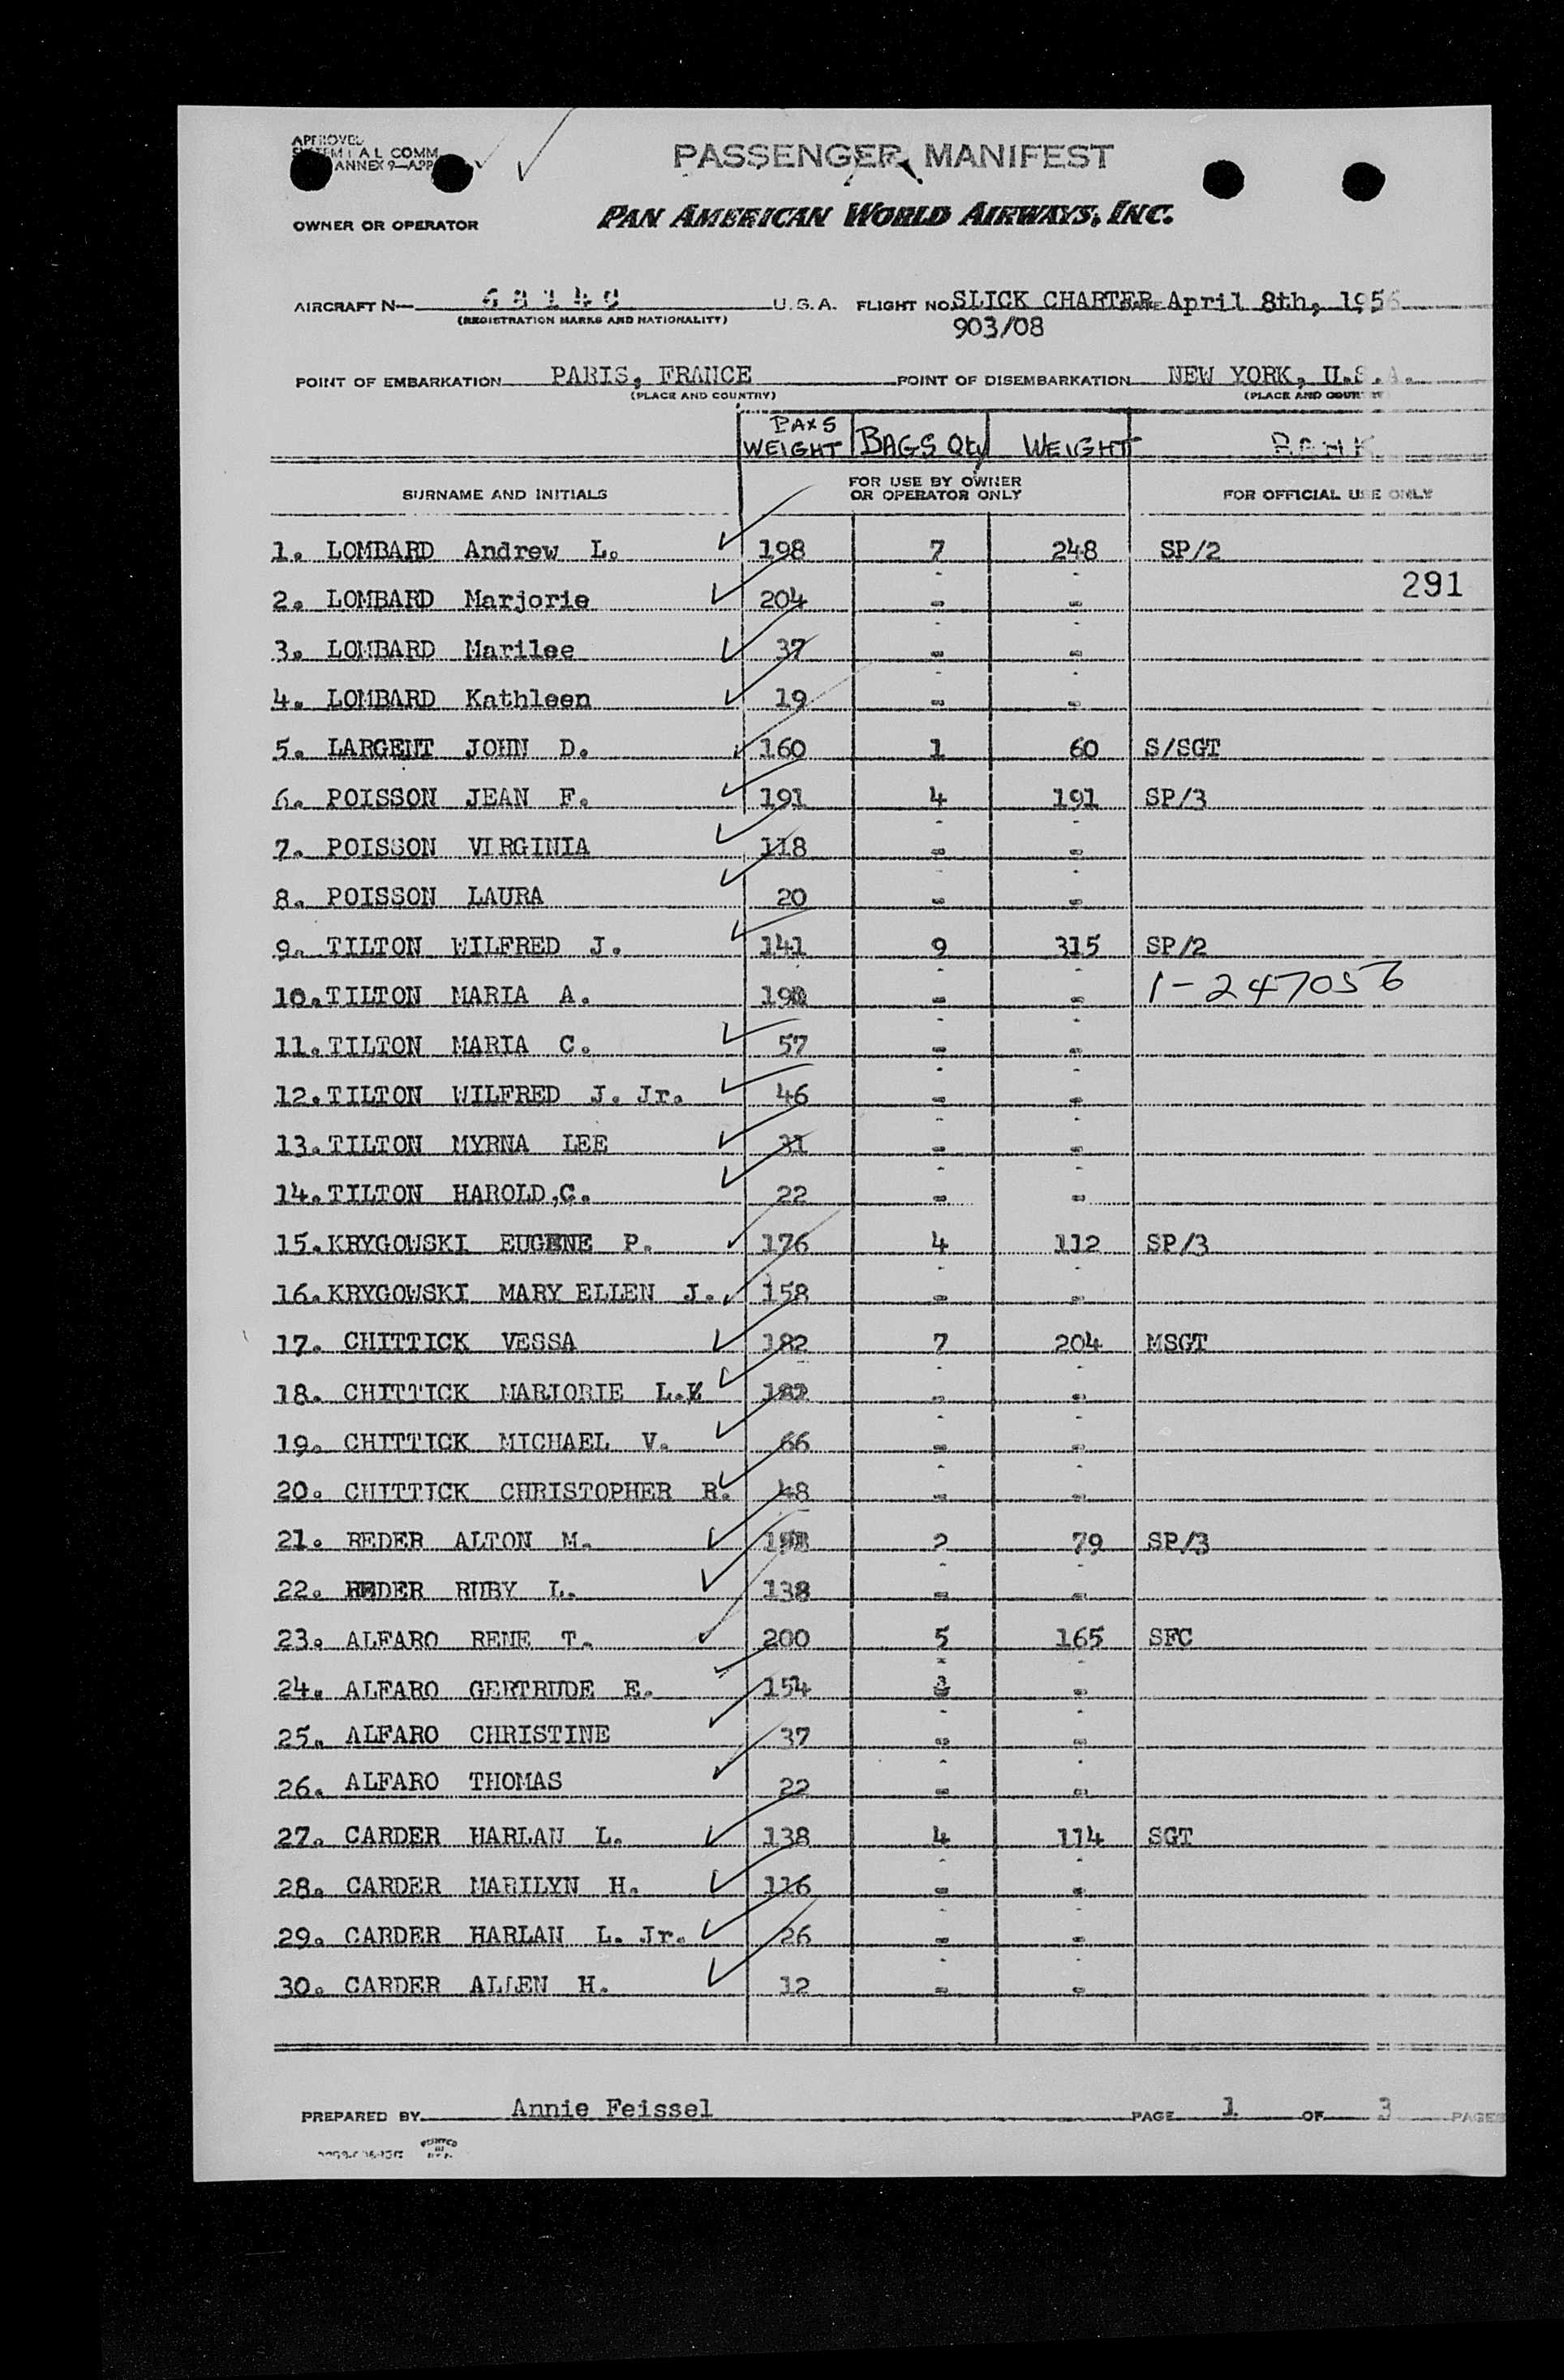 APPROVED
ANNEX 9—APP
PASSENGER MANIFEST
OWNER OR OPERATOR PAN AMERICAN WORLD AIRWAYS, INC.
AIRCRAFT N— U.S.A. FLIGHT NO. SLICK CHARTER DATE April 8th, 1956
(REGISTRATION MARKS AND NATIONALITY) 903/08
POINT OF EMBARKATION PARIS, FRANCE POINT OF DISEMBARKATION NEW YORK, U.S.A.
(PLACE AND COUNTRY) (PLACE AND COUNTRY)
PAXS WEIGHT BAGS Qty WEIGHT RANK
SURNAME AND INITIALS FOR USE BY OWNER OR OPERATOR ONLY FOR OFFICIAL USE ONLY
1. LOMBARD Andrew L. 198 7 248 SP/2
291
2. LOMBARD Marjorie 204 - -
3. LOMBARD Marilee 37 - -
4. LOMBARD Kathleen 19 - -
5. LARGENT JOHN D. 160 1 60 S/SGT
6. POISSON JEAN F. 191 4 191 SP/3
7. POISSON VIRGINIA 118 - -
8. POISSON LAURA 20 - -
9. TILTON WILFRED J. 141 9 315 SP/2
10. TILTON MARIA A. - - 1-247056
11. TILTON MARIA C. 57 - -
12. TILTON WILFRED J. Jr. 46 - -
13. TILTON MYRNA LEE 31 - -
14. TILTON HAROLD,C. 22 - -
15. KRYGOWSKI EUGENE P. 176 4 112 SP/3
16. KRYGOWSKI MARY ELLEN J. 158 - -
17. CHITTICK VESSA 182 7 204 MSGT
18. CHITTICK MARJORIE L. - -
19. CHITTICK MICHAEL V. 66 - -
20. CHITTICK CHRISTOPHER R. 48 - -
21. REDER ALTON M. 2 79 SP/3
22. REDER RUBY L. 138 - -
23. ALFARO RENE T. 200 5 165 SFC
24. ALFARO GERTRUDE E. 154 - -
25. ALFARO CHRISTINE 37 - -
26. ALFARO THOMAS 22 - -
27. CARDER HARLAN L. 138 4 114 SGT
28. CARDER MARILYN H. 116 - -
29. CARDER HARLAN L. Jr. 26 - -
30. CARDER ALLEN H. 12 - -
PREPARED BY Annie Feissel PAGE 1 OF 3 PAGES
PRINTED IN U.S.A.